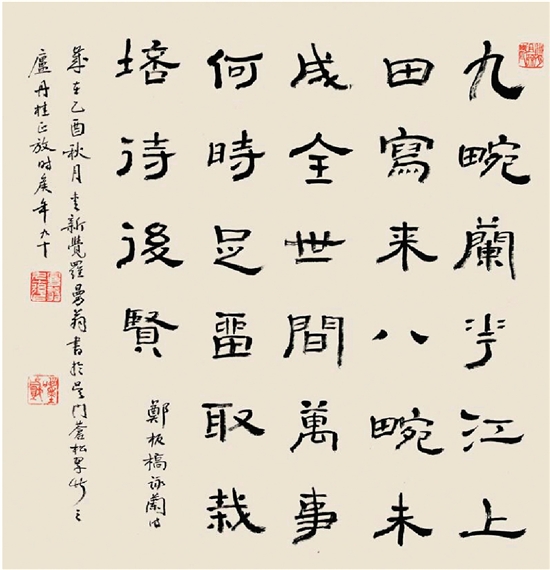 九畹蘭花江上
田寫来八畹未
成全世間萬事
何時足畱取栽
培待後賢
鄭板橋詠蘭詩
歲在乙酉秋月愛新覺羅曼翁書於吴門蒼松翠竹之
廬丹桂正放時矦年九十